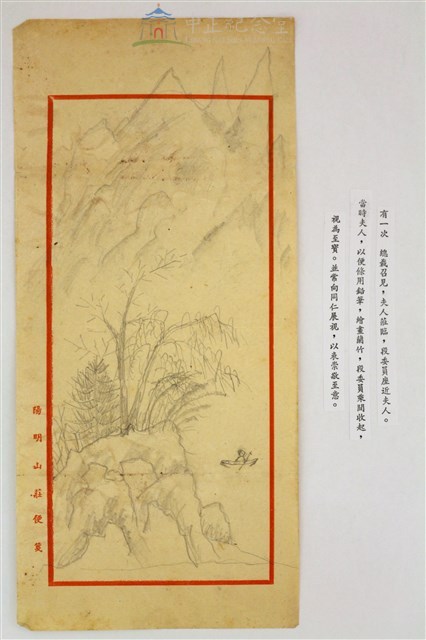 中正紀念堂
有一次　總裁召見，夫人蒞臨，段委員座近夫人。
當時夫人，以便條用鉛筆，繪畫蘭竹，段委員乘間收起，
視為至寶。並常向同仁展視，以表崇敬至意。
陽明山莊便箋